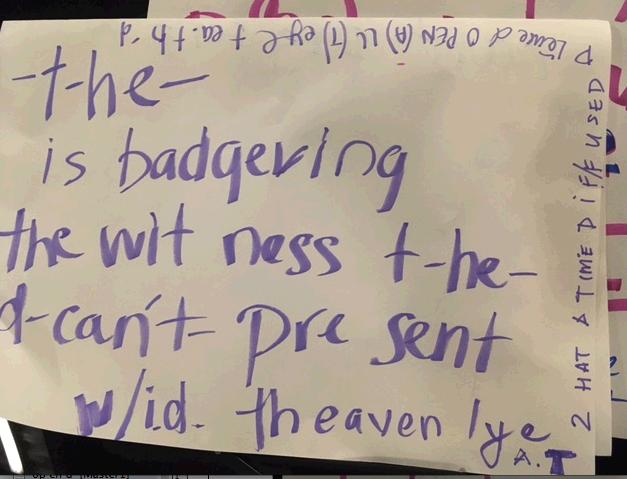 -t-he-
is badgering
the wit ness t-he-
d-can't= pre sent
w/id. theaven lye
A.T
2 HAT A TIME DIFFUSED
OPEN (A) LL (T) eye t ea.t h'd